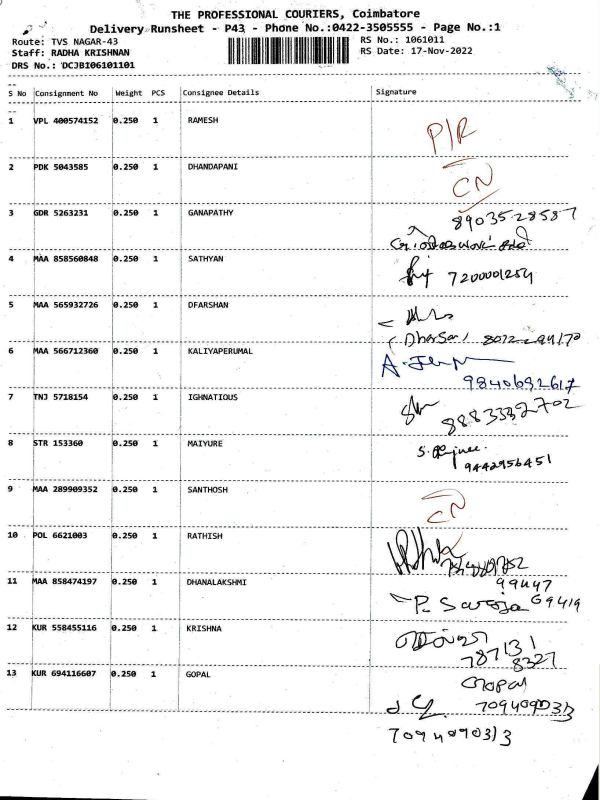 THE PROFESSIONAL COURIERS, Coimbatore
Delivery Runsheet - P43 - Phone No.:0422-3505555 - Page No.:1
Route: TVS NAGAR-43 RS No.: 1061011
Staff: RADHA KRISHNAN RS Date: 17-Nov-2022
DRS No.: DCJB106101101
S No Consignment No Weight PCS Consignee Details Signature
1 VPL 400574152 0.250 1 RAMESH P/R
2 PDK 5043585 0.250 1 DHANDAPANI CN
3 GDR 5263231 0.250 1 GANAPATHY 8903528587
4 MAA 858560848 0.250 1 SATHYAN 7200001254
5 MAA 565932726 0.250 1 DFARSHAN
6 MAA 566712360 0.250 1 KALIYAPERUMAL 9840692617
7 TNJ 5718154 0.250 1 IGHNATIOUS 8883332702
8 STR 153360 0.250 1 MAIYURE 9442956451
9 MAA 289909352 0.250 1 SANTHOSH CN
10 POL 6621003 0.250 1 RATHISH
11 MAA 858474197 0.250 1 DHANALAKSHMI 99447
P. Saroja 69419
12 KUR 558455116 0.250 1 KRISHNA 787131
8327
13 KUR 694116607 0.250 1 GOPAL Gopal
7094090313
7094090313